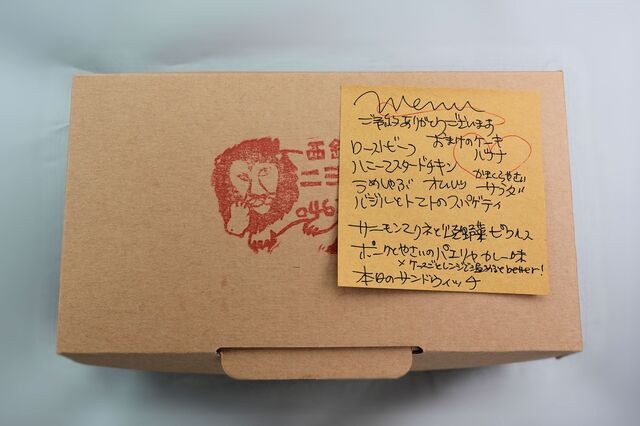 Menu
ご予約ありがとうございます
おまけのケーキ
バナナ
ローストビーフ
ハニーマスタードチキン
かまくらやさい
うめしゅぶ オムレツ サラダ
バジルとトマトのスパゲティ
サーモンマリネと野菜ピクルス
ポークとやさいのパエリヤカレー味
×ケースごとレンジで温めるとbetter!
本日のサンドウィッチ
046